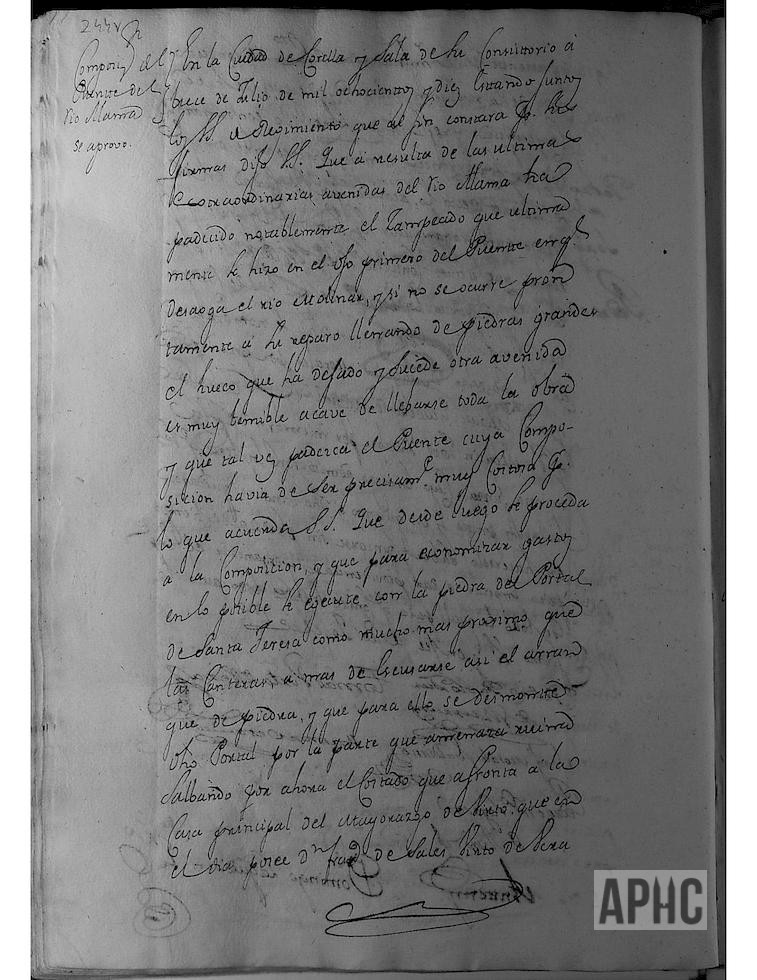 244v
Composn del
Puente del
rio Alhama
se aprovo.
En la Ciudad de Corella y Sala de su Consistorio a
trece de Julio de mil ochocientos y diez Estando juntos
los SS. del Regimiento que al fin constara P. sus
firmas dijo S.S. Que a resulta de las ultimas
extraordinarias avenidas del rio Alhama ha
padecido notablemente el Zampeado que ultima
mente se hizo en el ojo primero del Puente en q.e
desaoga el rio Molinar, y si no se ocurre pron
tamente a su reparo llenando de piedras grandes
el hueco que ha dejado y sucede otra avenida
es muy temible acave de lleparse toda la obra
y que tal vez padezca el Puente cuya Compo-
sicion havia de ser precisam.te muy Costosa P.
lo que acuerda S.S. Que desde luego se proceda
a la Composicion, y que para economizar gastos
en lo posible se egecute con la piedra del Portal
de Santa Teresa como mucho mas proximo que
las Canteras a mas de Escusarse asi el arran
que de piedra, y que para ello se desmonte
dho Portal por la parte que amenaza ruina
salbando por ahora el Costado que afronta a la
Casa principal del Mayorazgo de Virto que en
el dia posee Dn Fran.co de Sales Virto de Vera
APHC